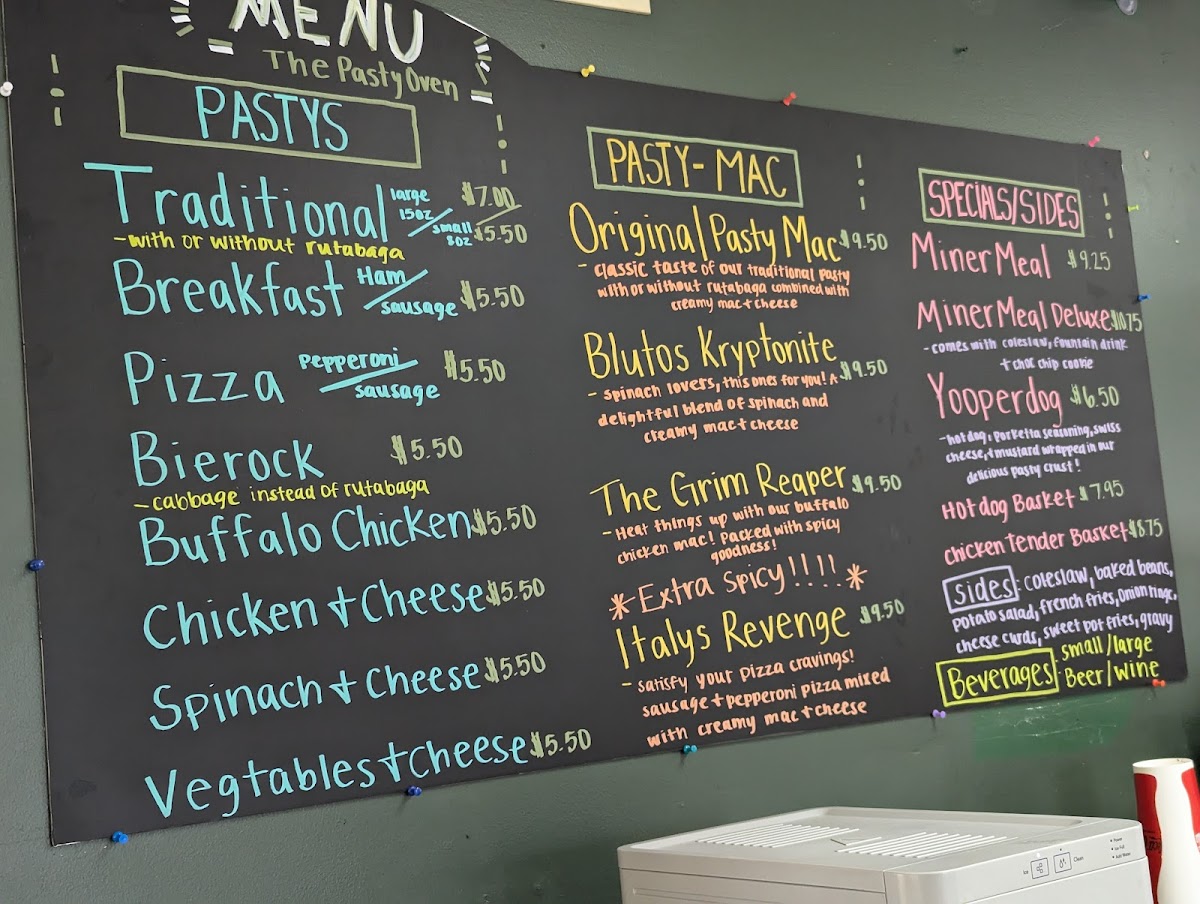 MENU
The Pasty Oven
PASTYS
Traditional large 15oz / small 8oz $7.00 / $5.50
-with or without rutabaga
Breakfast Ham / sausage $5.50
Pizza Pepperoni / sausage $5.50
Bierock $5.50
-cabbage instead of rutabaga
Buffalo Chicken $5.50
Chicken + Cheese $5.50
Spinach + Cheese $5.50
Vegtables + Cheese $5.50
PASTY-MAC
Original Pasty Mac $9.50
- classic taste of our traditional pasty
with or without rutabaga combined with
creamy mac + cheese
Blutos Kryptonite $9.50
- spinach lovers, this ones for you! A
delightful blend of spinach and
creamy mac + cheese
The Grim Reaper $9.50
- Heat things up with our buffalo
chicken mac! Packed with spicy
goodness!
*Extra Spicy!!!!*
Italys Revenge $9.50
- satisfy your pizza cravings!
sausage + pepperoni pizza mixed
with creamy mac + cheese
SPECIALS/SIDES
Miner Meal $9.25
Miner Meal Deluxe $10.75
- comes with coleslaw, fountain drink
+ choc chip cookie
Yooperdog $6.50
-hotdog, porketta seasoning, swiss
cheese, + mustard wrapped in our
delicious pasty crust!
Hot dog Basket $7.95
Chicken Tender Basket $8.75
Sides: coleslaw, baked beans,
potato salad, french fries, onion rings,
cheese curds, sweet pot fries, gravy
Beverages: small/large
Beer/wine
Ice
Clean
Power
Ice Full
Add Water